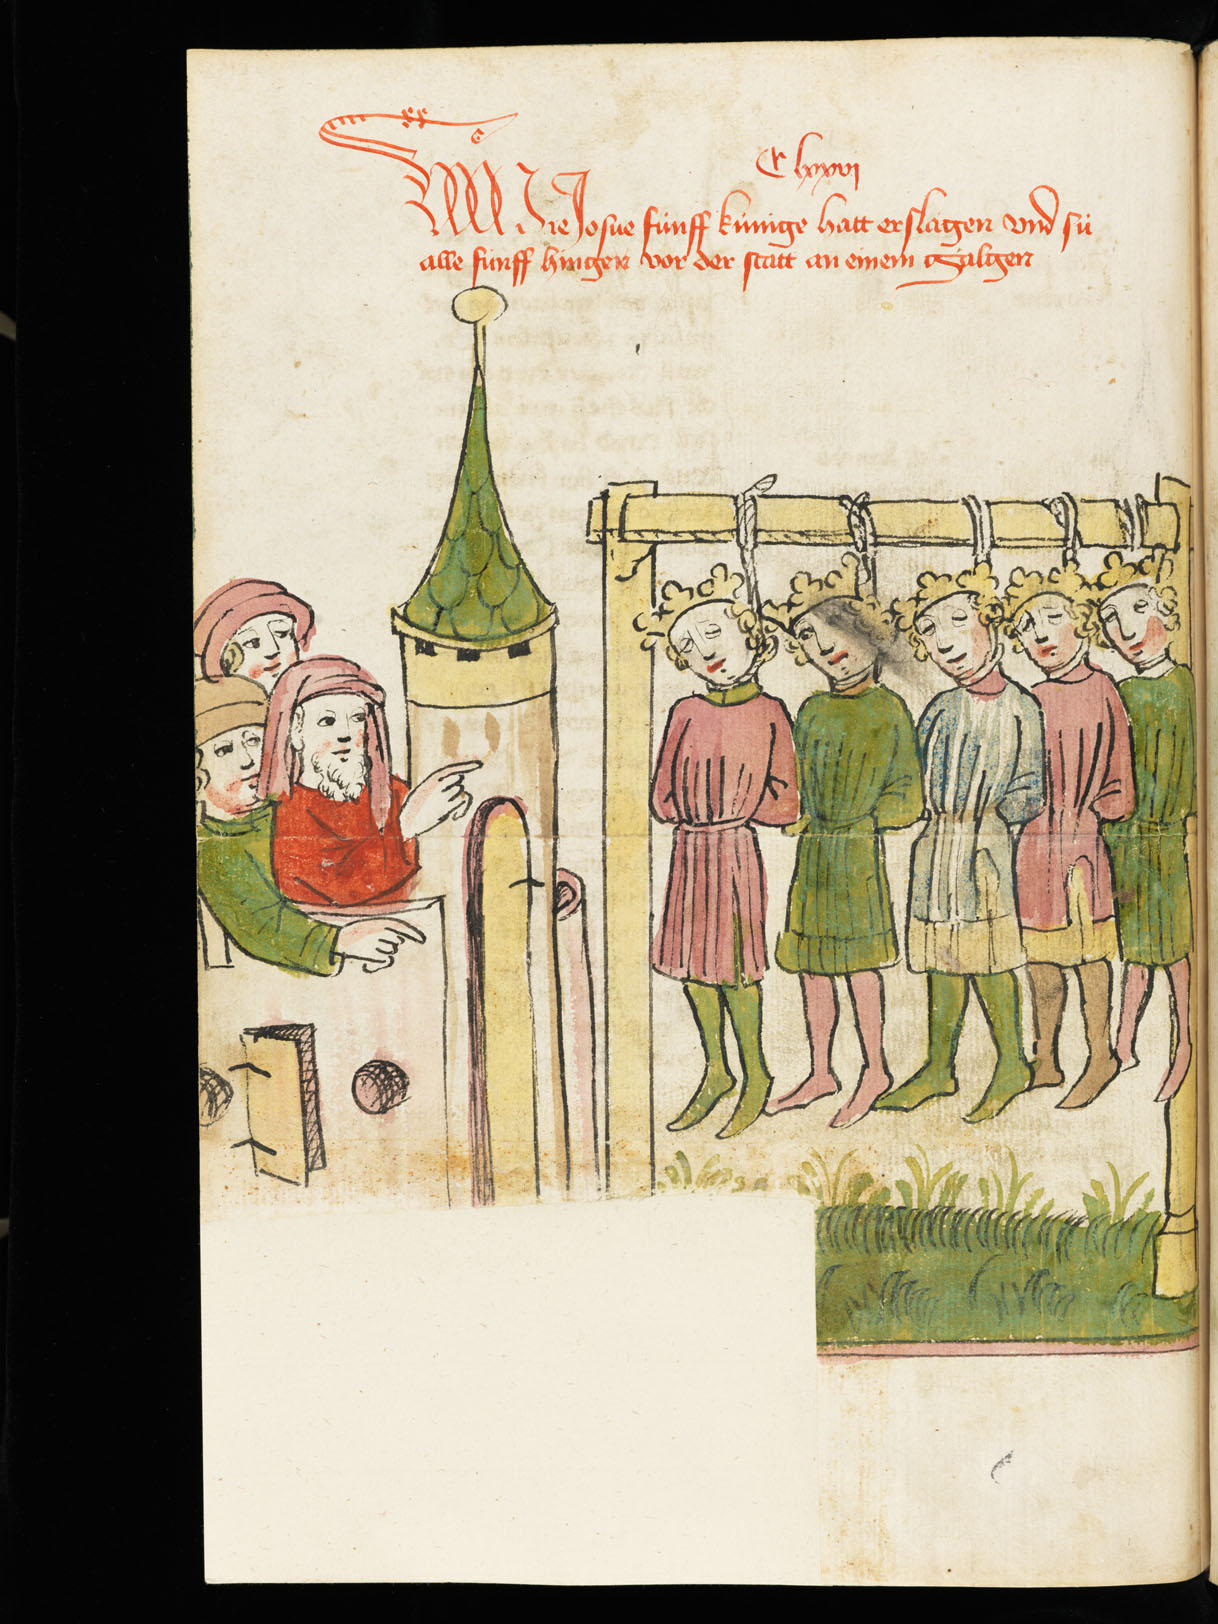 C lxxvi
Wie Josue fúnff kúnige hatt erslagen vnd sú
alle fúnff hingen vor der statt an einem galgen